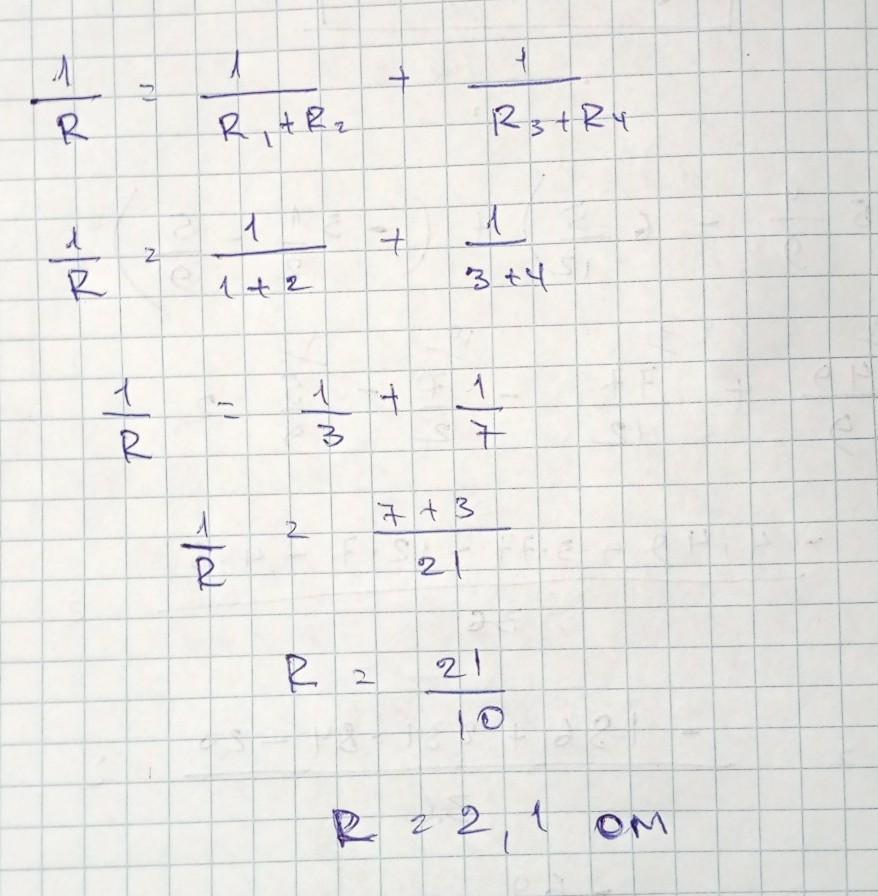 1/R = 1/(R₁+R₂) + 1/(R₃+R₄)
1/R = 1/(1+2) + 1/(3+4)
1/R = 1/3 + 1/7
1/R = (7+3)/21
R = 21/10
R = 2,1 ом